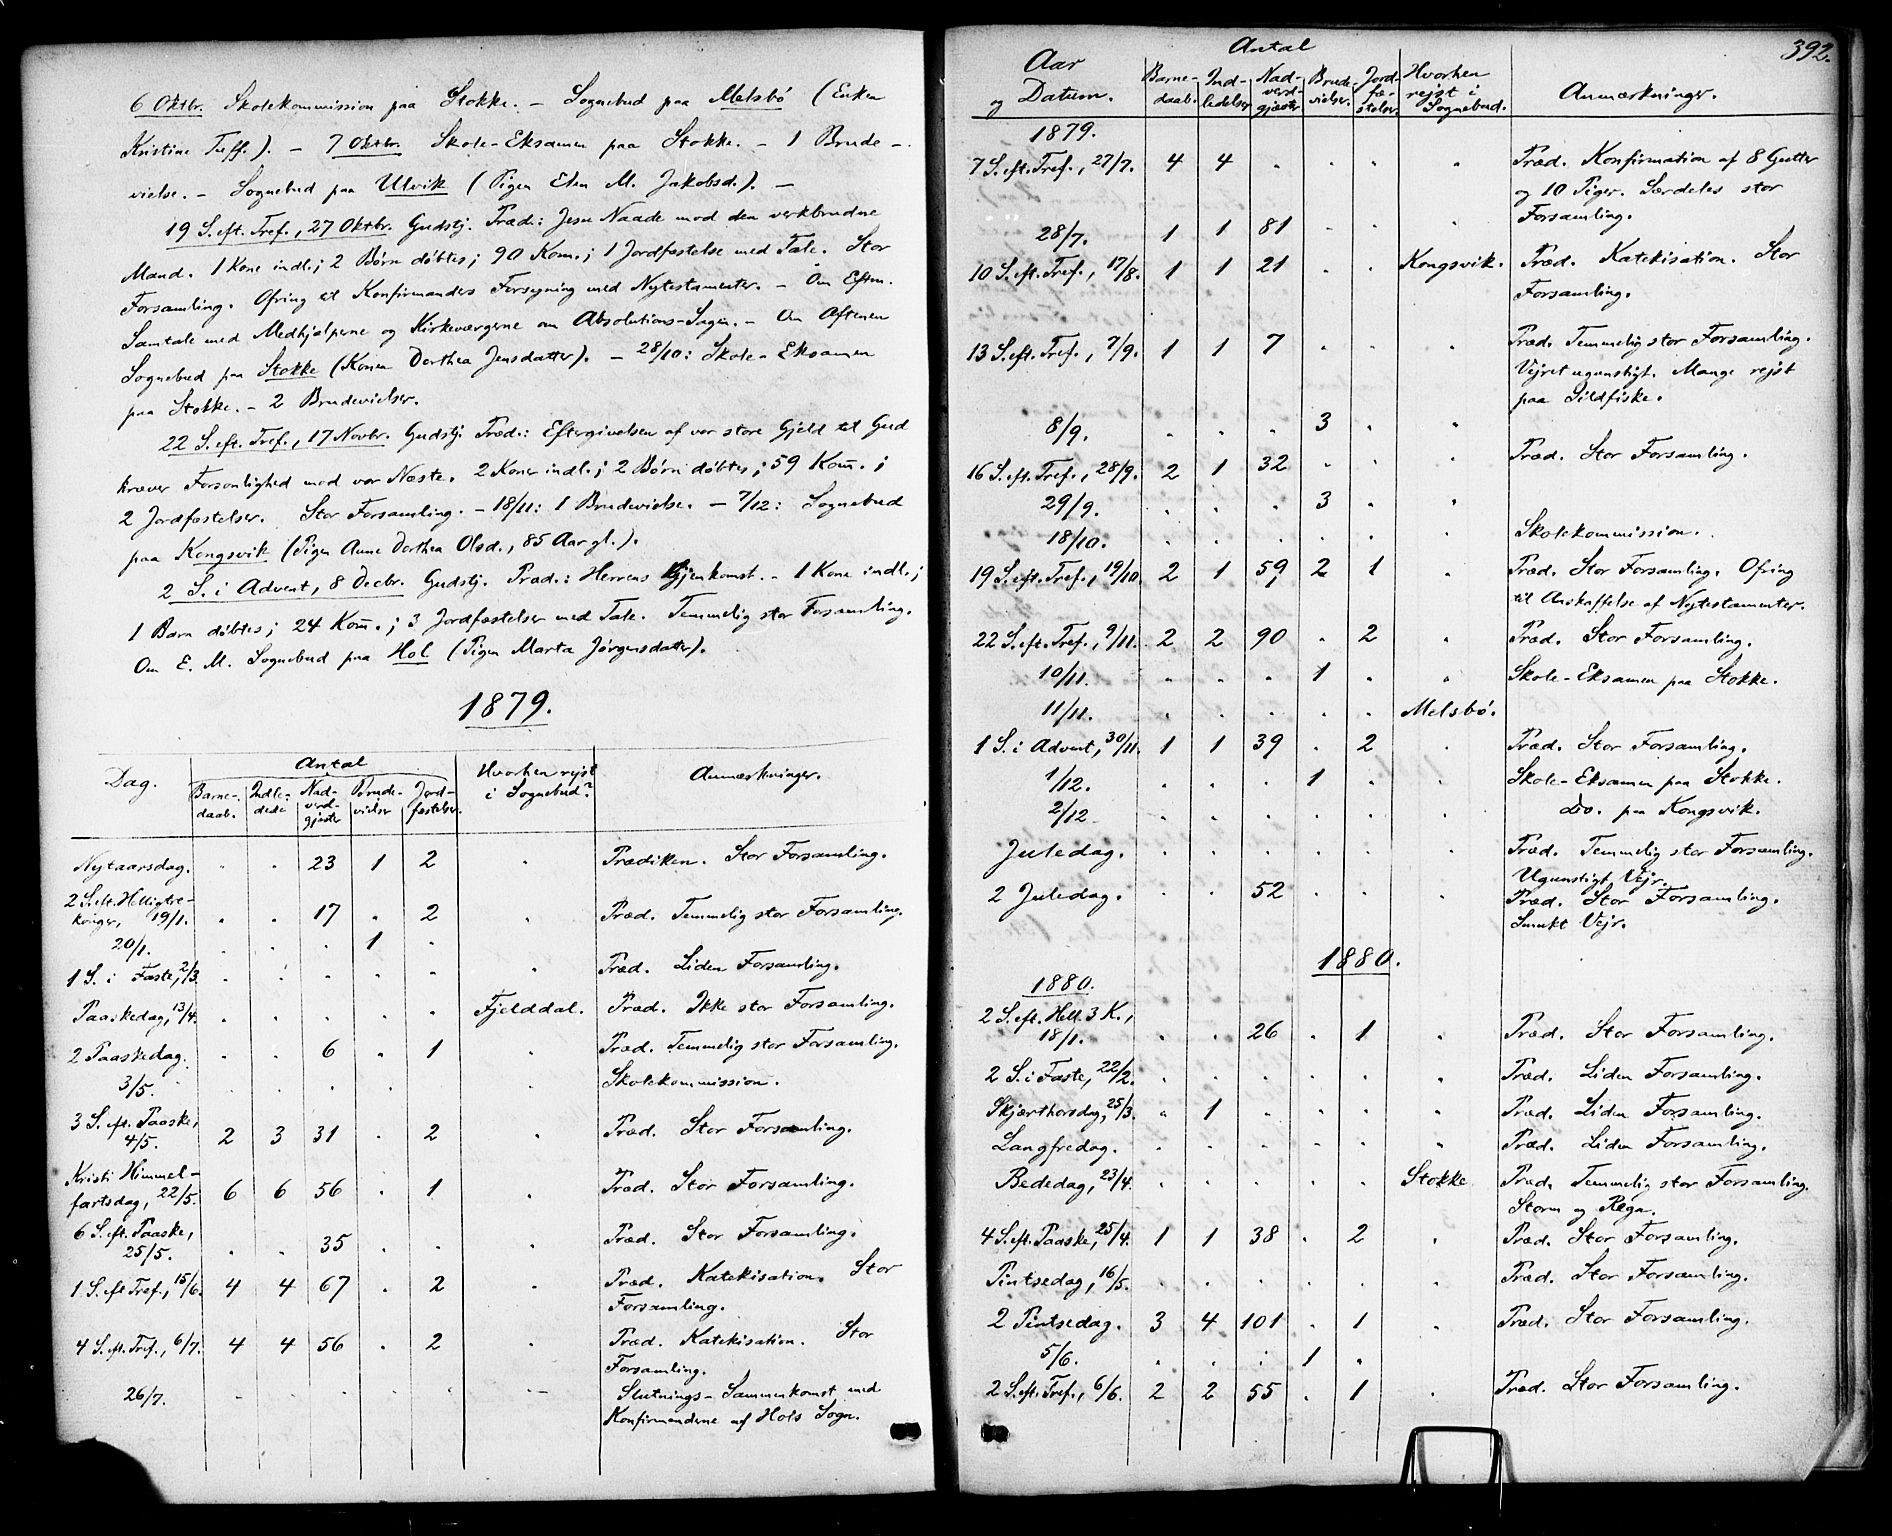 6 Oktbr. Skolekommission paa Stokke. – Sognebud paa Melsbö (Enken
Kristine Tuff.). – 7 Oktbr. Skole-Eksamen paa Stokke. – 1 Brude-
vielse. – Sognebud paa Ulvik (Pigen Elen M. Jakobsd.). –
19 S. eft. Tref., 27 Oktbr. Gudstj. Præd.: Jesu Naade mod den verkbrudne
Mand. 1 Kone indl.; 2 Børn døbtes; 90 Kom.; 1 Jordfæstelse med Tale. Stor
Forsamling. Ofring til Konfirmanders Forsyning med Nytestamenter. – Om Eftm.
Samtale med Medhjælperne og Kirkeværgerne om Absolutions-Sagen. – Om Aftenen
Sognebud paa Stokke (Konen Dorthea Jensdatter). – 28/10: Skole-Eksamen
paa Stokke. – 2 Brudevielser.
22 S. eft. Tref., 17 Novbr. Gudstj. Præd.: Eftergivelsen af vor store Gjeld til Gud
kræver Forsonlighed mod vor Næste. 2 Koner indl.; 2 Børn døbtes; 59 Kom.;
2 Jordfæstelser. Stor Forsamling. – 18/11: 1 Brudevielse. – 7/12: Sognebud
paa Kongsvik (Pigen Anne Dorthea Olsd., 85 Aar gl.).
2 S. i Advent, 8 Decbr. Gudstj. Præd.: Herrens Gjenkomst. – 1 Kone indl.;
1 Barn døbtes; 24 Kom.; 3 Jordfæstelser med Tale. Temmelig stor Forsamling.
Om E. M. Sognebud paa Hol (Pigen Marta Jørgensdatter).
1879.
Dag. Antal Hvorhen rejst i Sognebud? Anmærkninger.
Barne-daab. Indle-dede Nad-verd-gjæster Brude-vielser Jord-fæstelser.
Nytaarsdag. . . 23 1 2 . Prædiken. Stor Forsamling.
2 S. eft. Helligtre-
konger, 19/1. . . 17 . 2 . Præd. Temmelig stor Forsamling.
20/1. . . . 1 .
1 S. i Faste, 2/3 . . . . . . Præd. Liden Forsamling.
Paaskedag, 13/4. . . . . . Fjelddal. Præd. Ikke stor Forsamling.
2 Paaskedag. . . 6 . 1 . Præd. Temmelig stor Forsamling.
3/5. . . . . . . Skolekommission.
3 S. eft. Paaske,
4/5. 2 3 31 . 2 . Præd. Stor Forsamling.
Kristi Himmel-
fartsdag, 22/5. 6 6 56 . 1 . Præd. Stor Forsamling.
6 S. eft. Paaske,
25/5. . . 35 . . . Præd. Stor Forsamling.
1 S. eft Tref., 15/6. 4 4 67 . 2 . Præd. Katekisation. Stor
Forsamling.
4 S. eft. Tref., 6/7. 4 4 56 . 2 . Præd. Katekisation. Stor
Forsamling.
26/7. . . . . . . Slutnings-Sammenkomst med
Konfirmanderne af Hols Sogn.
392.
Aar og Datum. Antal Hvorhen rejst i Sognebud. Anmærkninger.
Barne-daab. Ind-ledelser Nad-verd-gjæster Brude-vielser. Jord-fæ-stelser.
1879.
7 S. eft. Tref., 27/7. 4 4 . . . . Præd. Konfirmation af 8 Gutter
og 10 Piger. Særdeles stor
Forsamling.
28/7. 1 1 81 . . .
10 S. eft. Tref., 17/8. 1 1 21 . . Kongsvik. Præd. Katekisation. Stor
Forsamling.
13 S. eft. Tref., 7/9. 1 1 7 . . . Præd. Temmelig stor Forsamling.
Vejret ugunstigt. Mange rejst
paa Sildfiske.
8/9. . . . 3 . .
16 S. eft. Tref., 28/9. 2 1 32 . . . Præd. Stor Forsamling.
29/9. . . . 3 . .
18/10. . . . . . . Skolekommission.
19 S. eft. Tref., 19/10. 2 1 59 2 1 . Præd. Stor Forsamling. Ofring
til Anskaffelse af Nytestamenter.
22 S. eft. Tref., 9/11. 2 2 90 . 2 . Præd. Stor Forsamling.
10/11. . . . 1 . . Skole-Eksamen paa Stokke.
11/11. . . . . . Melsbö.
1 S. i Advent, 30/11. 1 1 39 . 2 . Præd. Stor Forsamling.
1/12. . . . 1 . . Skole-Eksamen paa Stokke.
2/12 . . . . . . do. paa Kongsvik.
Juledag. . . . . . . Præd. Temmelig stor Forsamling.
Ugunstigt Vejr.
2 Juledag. . . 52 . . . Præd. Stor Forsamling.
Smukt Vejr.
1880.
1880.
2 S. eft. Hell. 3 K.,
18/1. . . 26 . 1 . Præd. Stor Forsamling.
2 S. i Faste, 22/2. . . . . . . Præd. Liden Forsamling.
Skjærthorsdag, 25/3. . 1 . . . . Præd. Liden Forsamling.
Langfredag. . . . . . . Præd. Liden Forsamling.
Bededag, 23/4. . . . . . Stokke Præd. Temmelig stor Forsamling.
Storm og Regn.
4 S. eft. Paaske, 25/4. 1 1 38 . 2 . Præd. Stor Forsamling.
Pintsedag, 16/5. . . . . . . Præd. Stor Forsamling.
2 Pintsedag. 3 4 101 . 1 . Præd. Stor Forsamling.
5/6. . . . 1 .
2 S. eft. Tref., 6/6. 2 2 55 . 1 . Præd. Stor Forsamling.